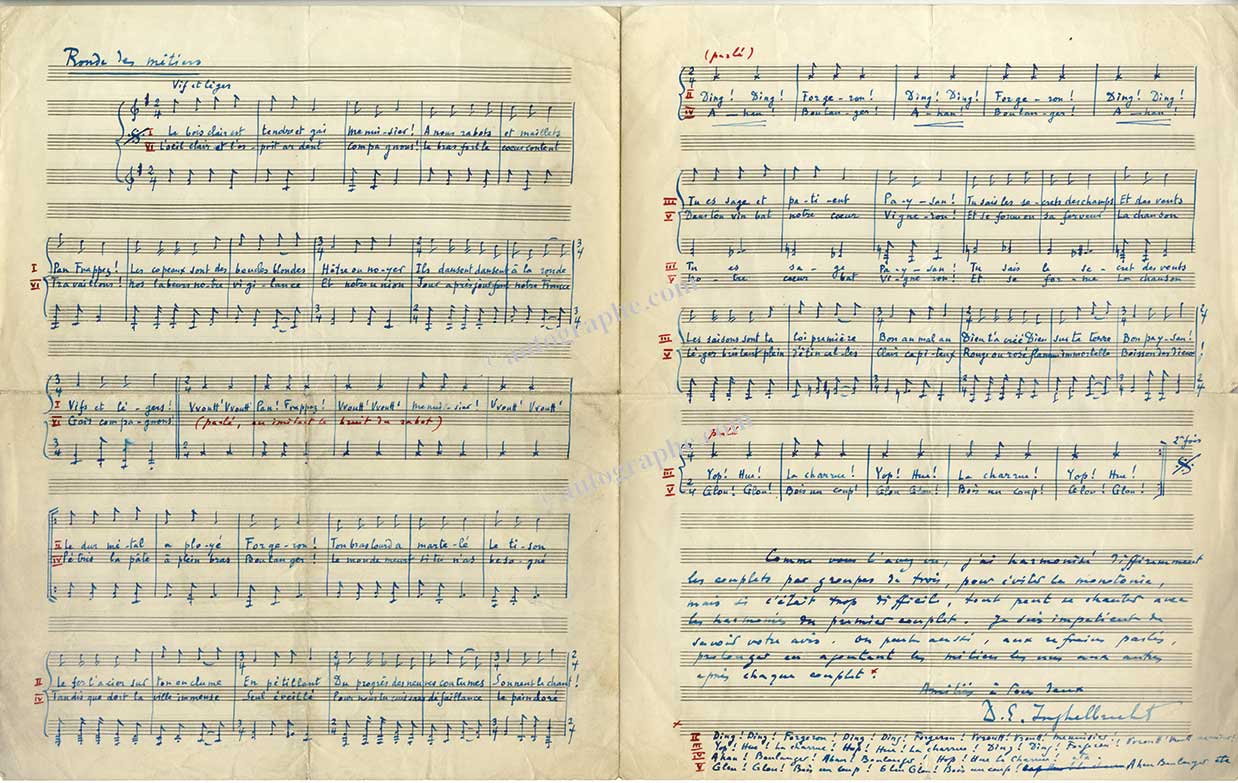 Ronde des métiers
Vif et léger
I Le bois clair est tendre et gai Menui-sier! A nous rabots et maillets
VI L'oeil clair et l'es-prit ardent compagnons! le bras fort le coeur content
I Pan Frappez! Les copeaux sont des boucles blondes Hêtre ou no-yer Ils dansent dansent à la ronde
VI Travaillons! nos labeurs no-tre vi-gi-lance Et notre union Jour après jour font notre France
I Vifs et lé-gers! Vroutt! Vroutt! Pan! Frappez! Vroutt! Vroutt! menui-sier! Vroutt! Vroutt!
VI Gais compa-gnons! (parlé, en imitant le bruit du rabot)
II Le dur mé-tal a plo-yé For-ge-ron! Ton bras lourd a marte-lé Le ti-son
IV Pé-tris la pâte à plein bras Boulan-ger! Le monde meurt si tu n'as beso-gné
II Le fer l'acier sur ton enclume En pétillant Du progrès des neuves coutumes Sonnent le chant!
IV Tandis que dort la ville immense Seul éveillé Pour nourrir sans défaillance Le pain doré
(parlé)
II Ding! Ding! For-ge-ron! Ding! Ding! For-ge-ron! Ding! Ding!
IV A-han! Boulan-ger! A-han! Boulan-ger! A-han!
III Tu es sage et pa-ti-ent Pa-y-san! Tu sais les se-crets des champs Et des vents
V Dans ton vin bat notre coeur Vigne-ron! Et se forme en sa ferveur La chanson
III Tu es sa-ge Pa-y-san! Tu sais le se-cret des vents
V no-tre coeur bat Vi-gne-ron! Et se for-me La chanson
III Les saisons sont ta loi première Bon an mal an Dieu t'a créé Dieu sur ta terre Bon pay-san!
V Lé-ger brûlant plein d'étin-cel-les Clair capi-teux Rouge ou rosé flamme immortelle Boisson des dieux!
parlé
2e fois
III Yop! Hue! La charrue! Yop! Hue! La charrue! Yop! Hue!
V Glou! Glou! Bois un coup! Glou Glou! Bois un coup! Glou! Glou!
Comme vous l'avez vu, j'ai harmonisé différemment
les couplets par groupes de trois, pour éviter la monotonie,
mais si c'était trop difficile, tout peut se chanter avec
les harmonies du premier couplet. Je suis impatient de
savoir votre avis. On peut aussi, aux refrains parlés,
prolonger en ajoutant les métiers les uns aux autres
après chaque couplet x
Amitiés à tous deux
D. E. Inghelbrecht
x
II Ding! Ding! Forgeron! Ding! Ding! Forgeron! Vroutt! Vroutt! menuisier!
III Yop! Hue! La charrue! Hop! Hue! La charrue! Ding! Ding! Forgeron! Vroutt Vroutt menuisier!
IV Ahan! Boulanger! Ahan! Boulanger! Hop! Hue La Charrue! etc
V Glou! Glou! Bois un coup! Glou Glou! Bois un coup! Ahan Boulanger etc
© autographe.com
© autographe.com